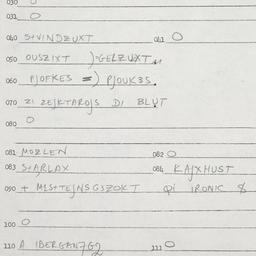 030 O
031 O
040 S+VINDZUXT 041 O
050 OUSZIXT )-GELZUXT
060 PJOFKES =) PJOUKBS.
070 ZI ZEJKTAROJS DI BLUT
080 O
081 MOZLEN 082 O
083 S+ARLAX 084 KAJXHUST
090 + MIS+TEJNSGSZOKT QI IRONIC &
100 O
110 A IBERGAN7G2 111 O